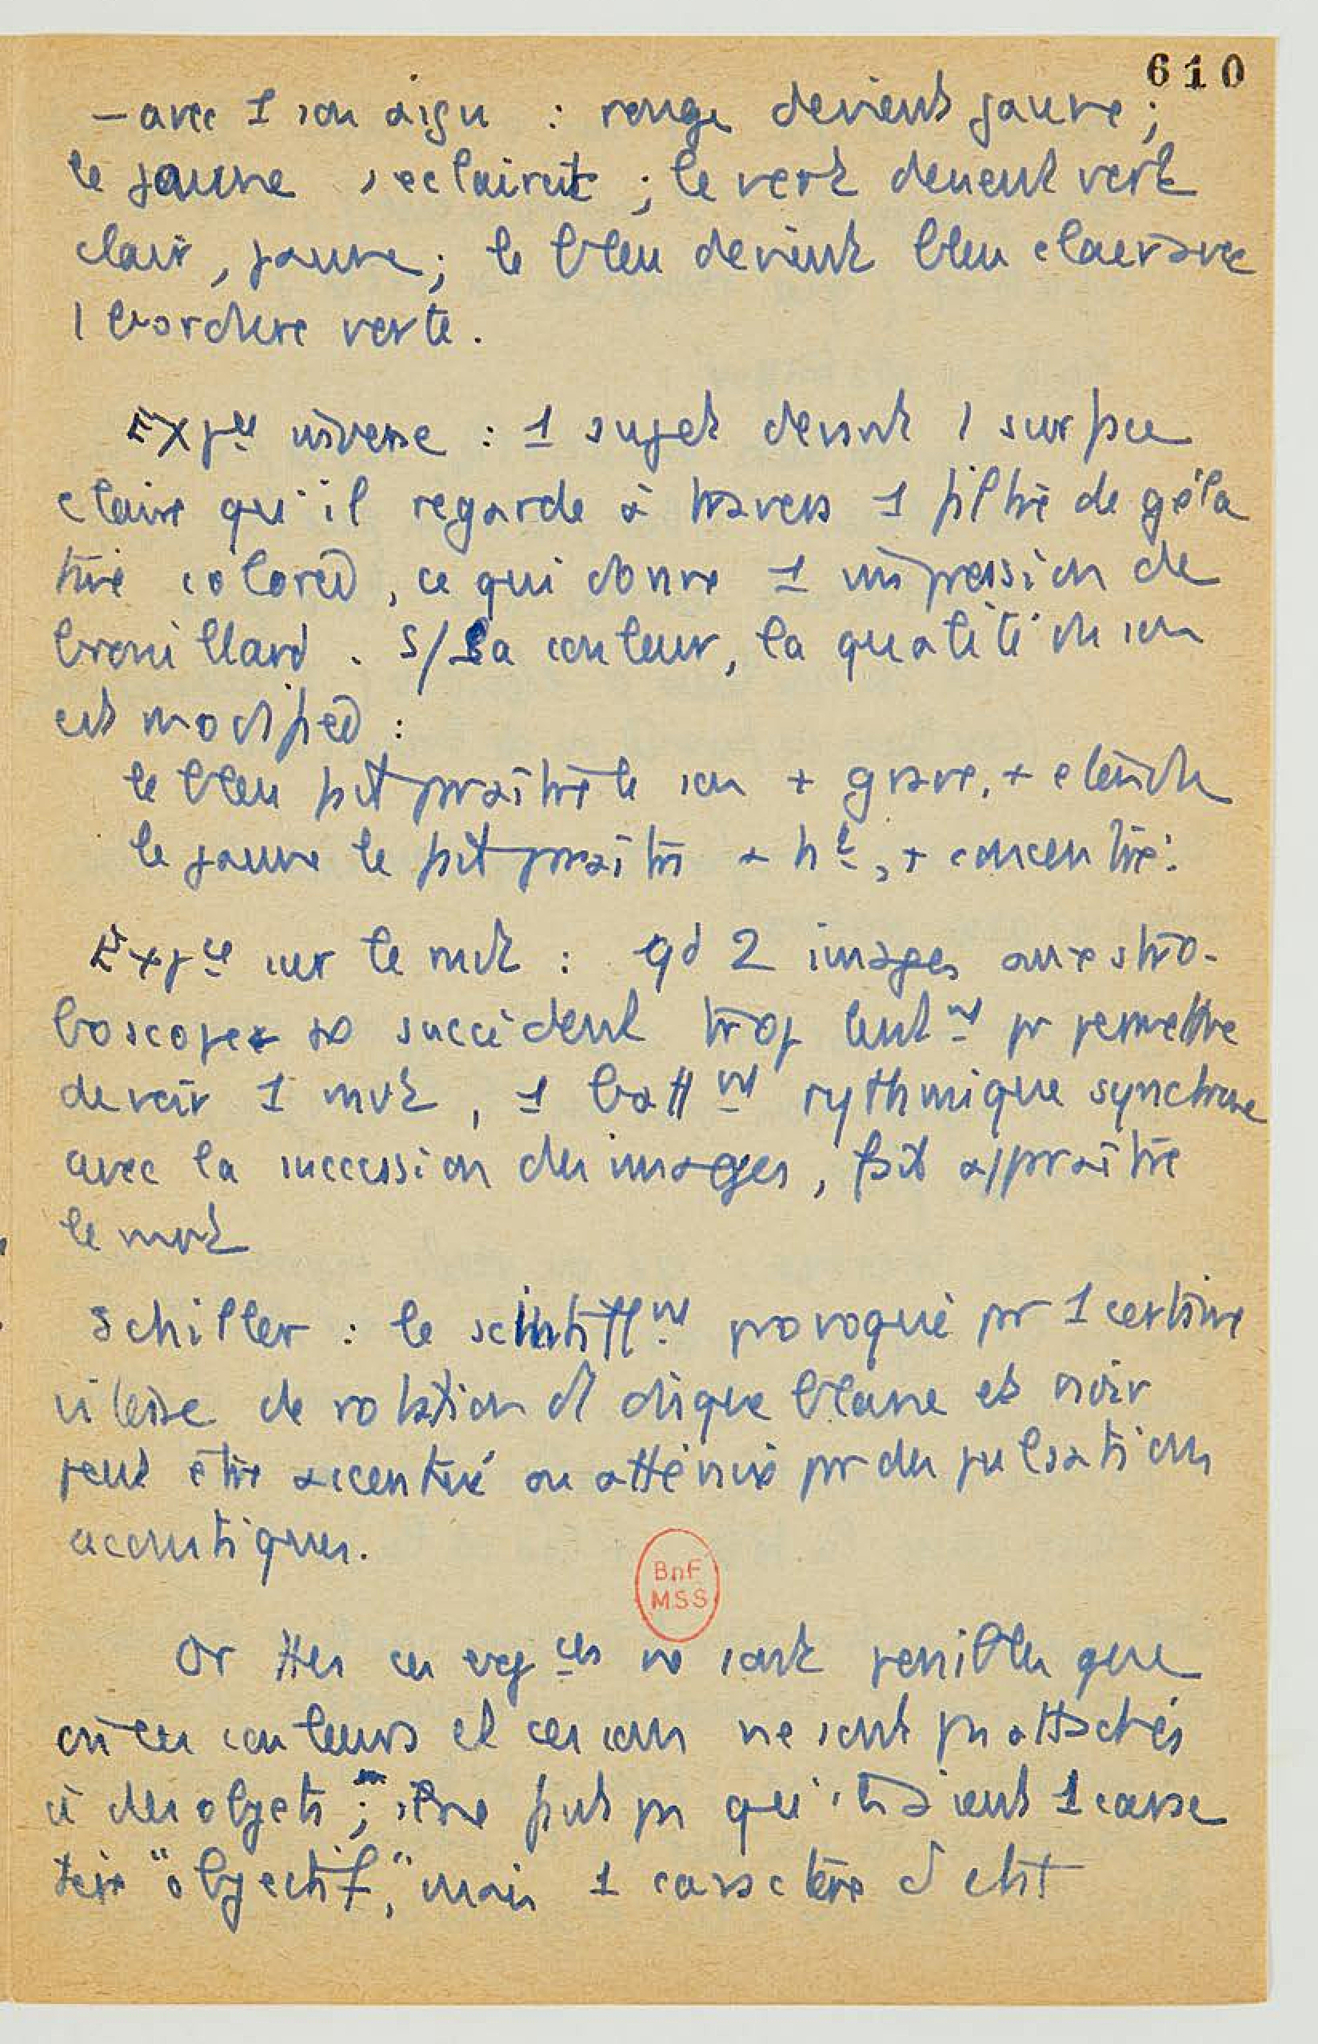 610
— avec 1 son aigu : rouge devient jaune ;
le jaune s'eclaircit ; le vert devient vert
clair, jaune ; le bleu devient bleu clair avec
1 bordure verte.
Expce inverse : 1 sujet devant 1 surface
claire qu'il regarde à travers 1 filtre de géla
tine coloréd, ce qui donne 1 impression de
brouillard. S/ la couleur, la qualité du son
est modifiéd :
le bleu fait paraître le son + grave, + étendu
le jaune le fait paraître + ht, + concentré.
Expce sur le mvt : qd 2 images au stro-
boscope se succèdent trop lentmt pr permettre
de voir 1 mvt, 1 battmt rythmique synchrone
avec la succession des images, fait apparaître
le mvt
Schiller : le scintillmt provoqué pr 1 certaine
vitesse de rotation d'1 disque blanc et noir
peut être accentué ou atténué pr des pulsations
acoustiques.
BnF
MSS
Or ttes ces expces ne sont possibles que
où ces couleurs et ces sons ne sont pas attachés
à des objets ; il ne faut pas qu'ils aient 1 carac
tère "objectif," mais 1 caractère d'état